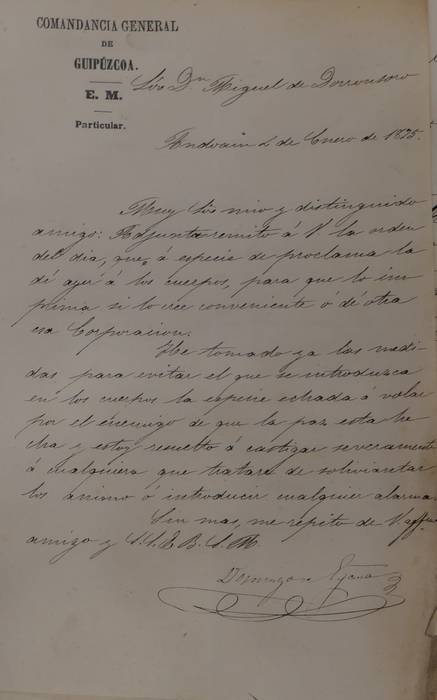 COMANDANCIA GENERAL
DE
GUIPÚZCOA.
E. M.
Particular.
Sór Dn Miguel de Dorronsoro
Andoain 2 de Enero de 1875.
Muy Sór mio y distinguido
amigo: Adjunta remito á V la orden
del dia, que, á especie de proclama la
dí ayer á los cuerpos, para que lo im
prima si lo cree conveniente ó dé otra
esa Corporacion.
He tomado ya las medi
das para evitar el que se introduzca
en los cuerpos la especie echada á volar
por el enemigo de que la paz esta he
cha y estoy resuelto á castigar severamente
á cualquiera que tratare de soliviantar
los animo ó introducir cualquier alarma
Sin mas, me repito de V. affmo
amigo y S. S. Q. B. S. M.
Domingo de Egaña